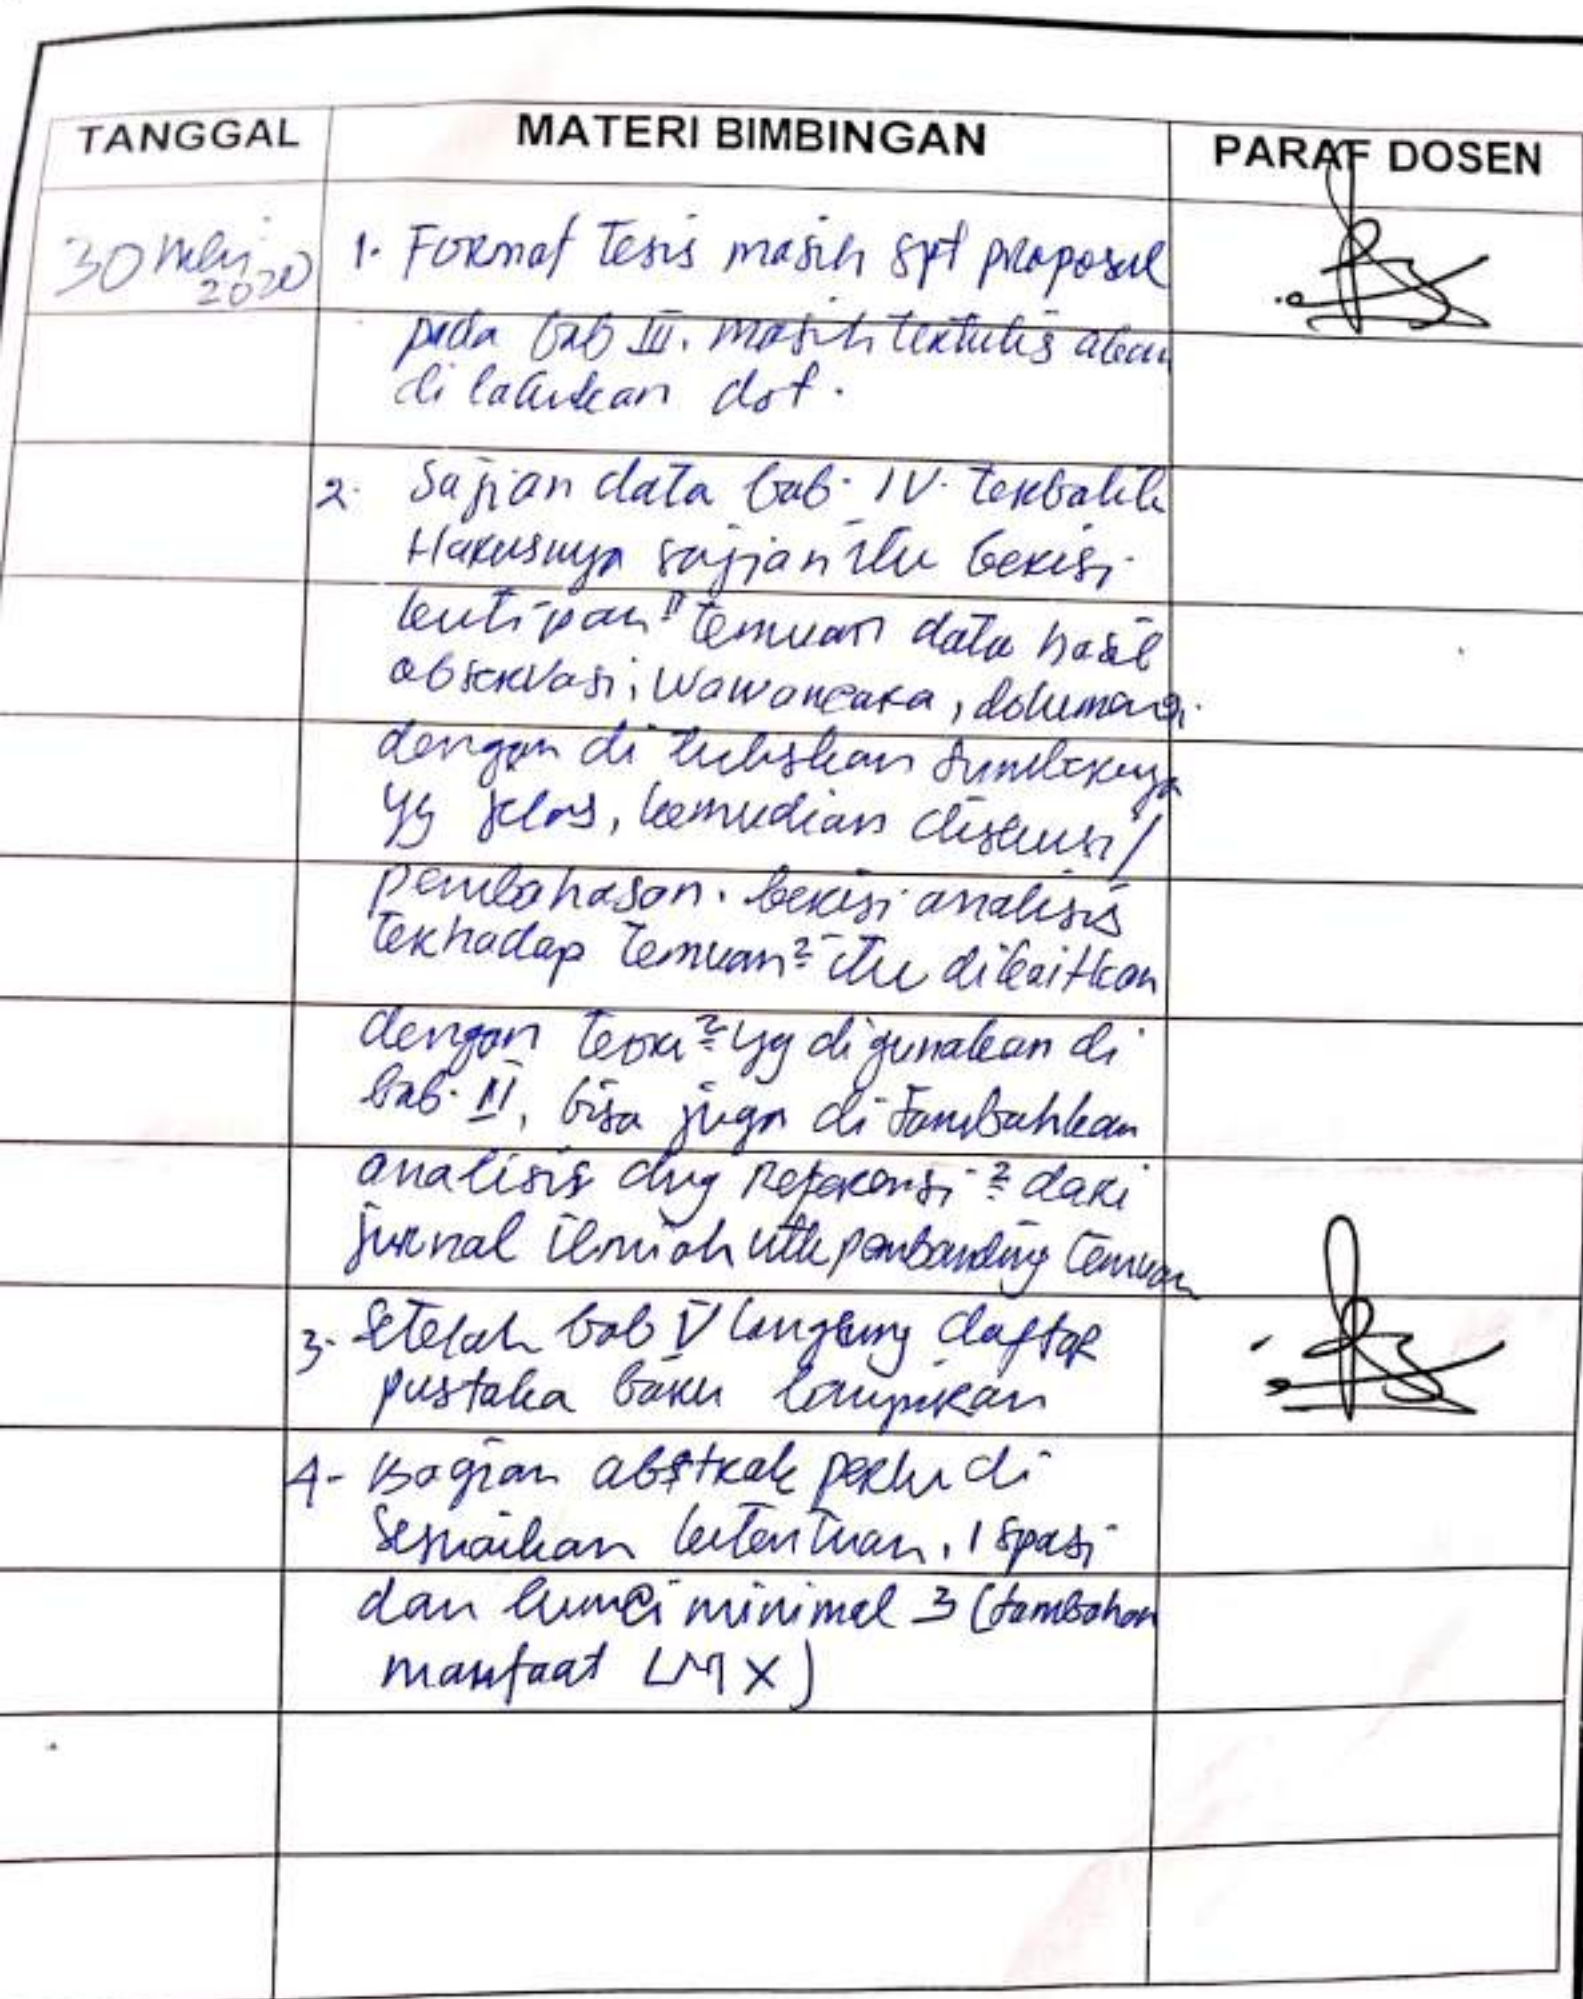 TANGGAL MATERI BIMBINGAN PARAF DOSEN
30 Mei 2020
1. Format Tesis masih spt proposal
pada bab III. masih tertulis akan
di lakukan dst.
2. Sajian data bab. IV. terbalik
Harusnya sajian itu berisi
kutipan" temuan data hasil
observasi, wawancara, dokumen
dengan di tuliskan sumbernya
yg jelas, kemudian diskusi/
pembahasan. berisi analisis
terhadap temuan² itu dikaitkan
dengan teori² yg digunakan di
bab. II, bisa juga di tambahkan
analisis dng Referensi² dari
jurnal ilmiah utk pembanding temuan
3. Setelah bab V langsung daftar
pustaka baru lampiran
4- Bagian abstrak perlu di
sesuaikan ketentuan, 1 spasi
dan kunci minimal 3 (tambahan
manfaat LM X)